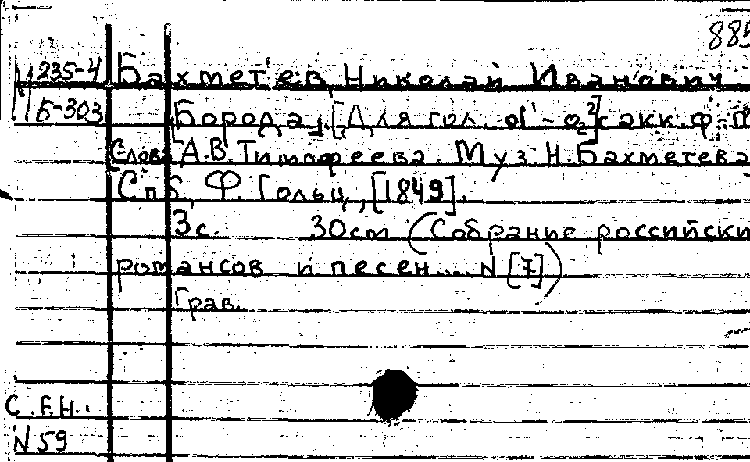 885
М 235-4 Бахметев, Николай Иванович
Б-303 Борода, [Для гол. d¹-a²] с акк. ф-п
Слова А.В. Тимофеева. Муз. Н. Бахметева
Спб, Ф. Гольц, [1849].
3с. 30см (Собрание российски
романсов и песен... N [7])
Грав.
С.Е.Н.
N 59